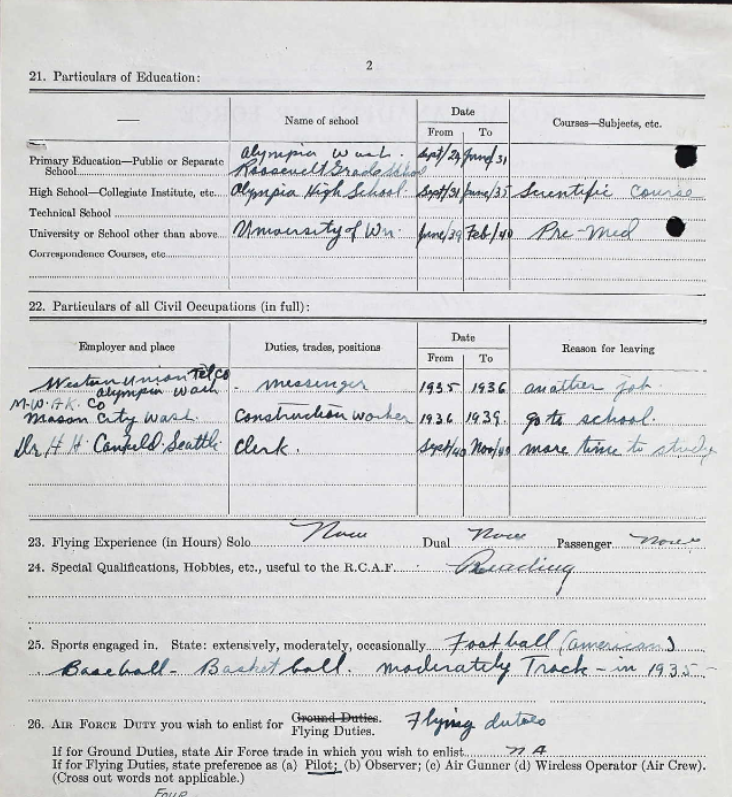 2
21. Particulars of Education:
Name of school
Date
From To
Courses—Subjects, etc.
Olympia Wash.
Primary Education—Public or Separate School Roosevelt Grade School Sept/24 June/31
High School—Collegiate Institute, etc. Olympia High School. Sept/31 June/35 Scientific Course
Technical School
University or School other than above University of Wn. June/39 Feb/40 Pre-Med
Correspondence Courses, etc.
22. Particulars of all Civil Occupations (in full):
Employer and place
Duties, trades, positions
Date
From To
Reason for leaving
Western Union Tel Co
Olympia Wash - messenger 1935 1936 another job.
M.W.A.K. Co
Mason City Wash. Construction worker 1936 1939. go to school.
Dr. H. H. Canfield Seattle. Clerk. Sept/40 Nov/40 more time to study
23. Flying Experience (in Hours) Solo None Dual None Passenger None
24. Special Qualifications, Hobbies, etc., useful to the R.C.A.F. Reading
25. Sports engaged in. State: extensively, moderately, occasionally Football (american)
Baseball - Basket ball. moderately Track - in 1935 -
26. AIR FORCE DUTY you wish to enlist for Ground Duties. Flying duties
Flying Duties.
If for Ground Duties, state Air Force trade in which you wish to enlist NA
If for Flying Duties, state preference as (a) Pilot; (b) Observer; (c) Air Gunner (d) Wireless Operator (Air Crew).
(Cross out words not applicable.)
Four